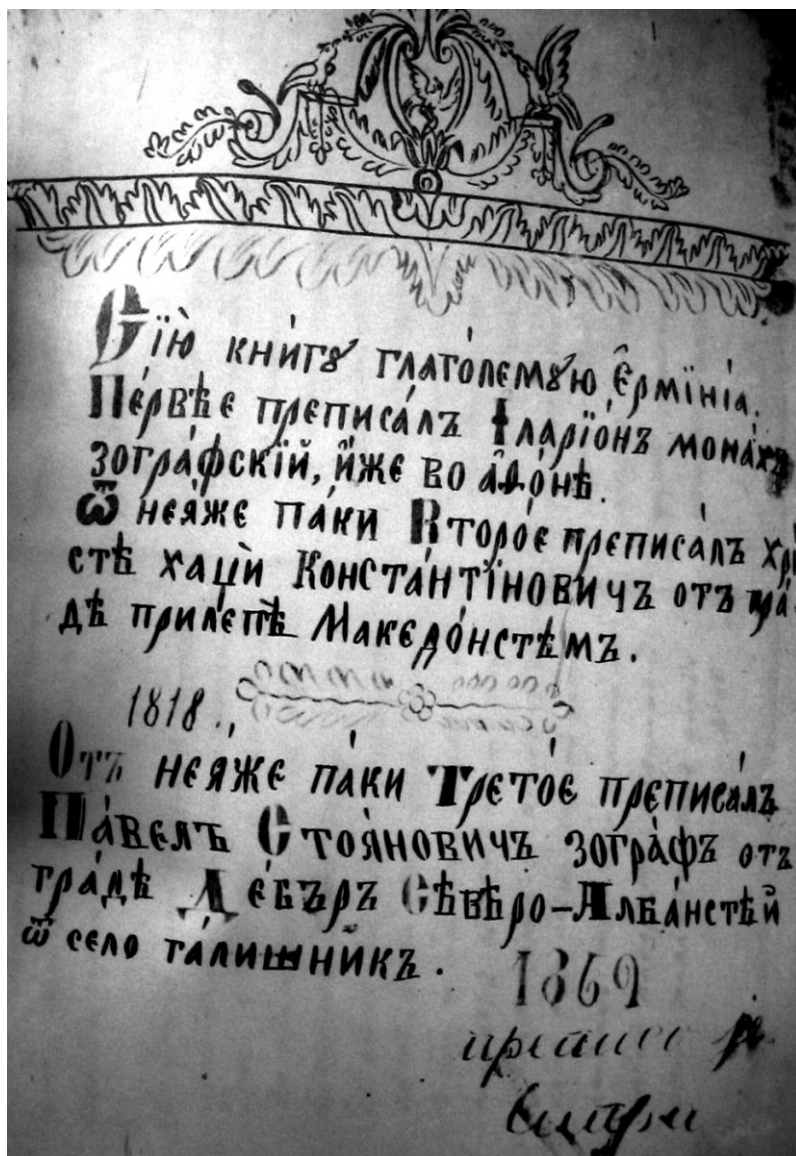 Сїю̀ кни́гꙋ глаго́лемꙋю Є҆рмїні́а.
Пе́рвѣе преписа́лъ Іларїо́нъ мона́хъ
зогра́фскїй, и҆́же во аѳо́нѣ.
ѿ нея́же па́ки Второ́е преписа́лъ хрі
стѣ хаџи́ Конста́нтїновичъ отъ гра́-
дѣ приле́пѣ Македо́нстѣмъ.
1818.,
Отъ нея́же па́ки Трето́е преписа́лъ
Па́велъ Стоя́новичъ зогра́фъ отъ
гра́дѣ Де́бъръ Сѣ́вѣро-Алба́нстѣй
ѿ село га́лишни́къ.
1869